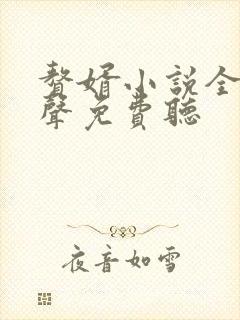 贅婿小説全
聲免費聽
夜音如雪